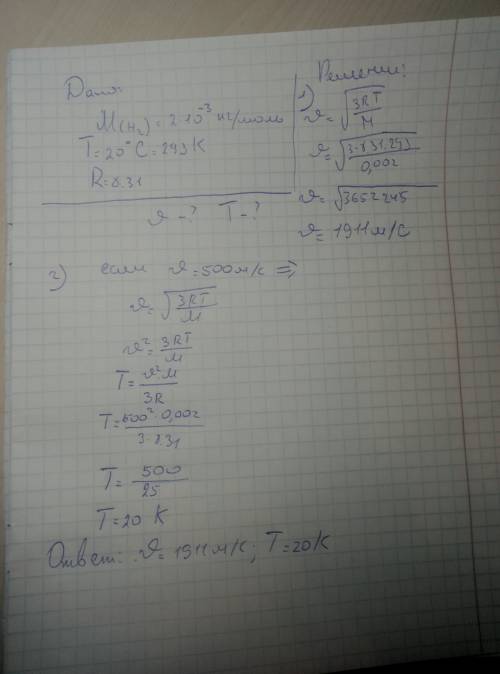 Дано:
M(H₂) = 2·10⁻³ кг/моль
T = 20°C = 293K
R = 8.31
𝜗 - ? T - ?
Решение:
1) 𝜗 = √(3RT/M)
𝜗 = √(3·8.31·293/0,002)
𝜗 = √3652245
𝜗 = 1911 м/с
2) если 𝜗 = 500 м/с =>
𝜗 = √(3RT/M)
𝜗² = 3RT/M
T = 𝜗²M/3R
T = 500²·0,002/3·8.31
T = 500/25
T = 20 K
Ответ: 𝜗 = 1911 м/с; T = 20K